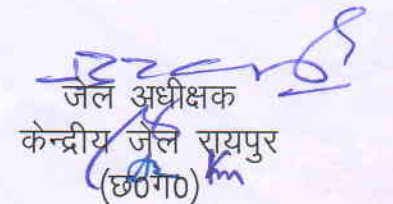 जेल अधीक्षक
केन्द्रीय जेल रायपुर
(छ0ग0)